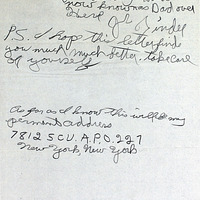 now knowmas Dad over
here J L Lindel
P.S. I hope this letter finds
you much much better. take care
of yourself
as far as I know this will be my
perment address
7812 SCU. A.P.O. 227
New York, New York